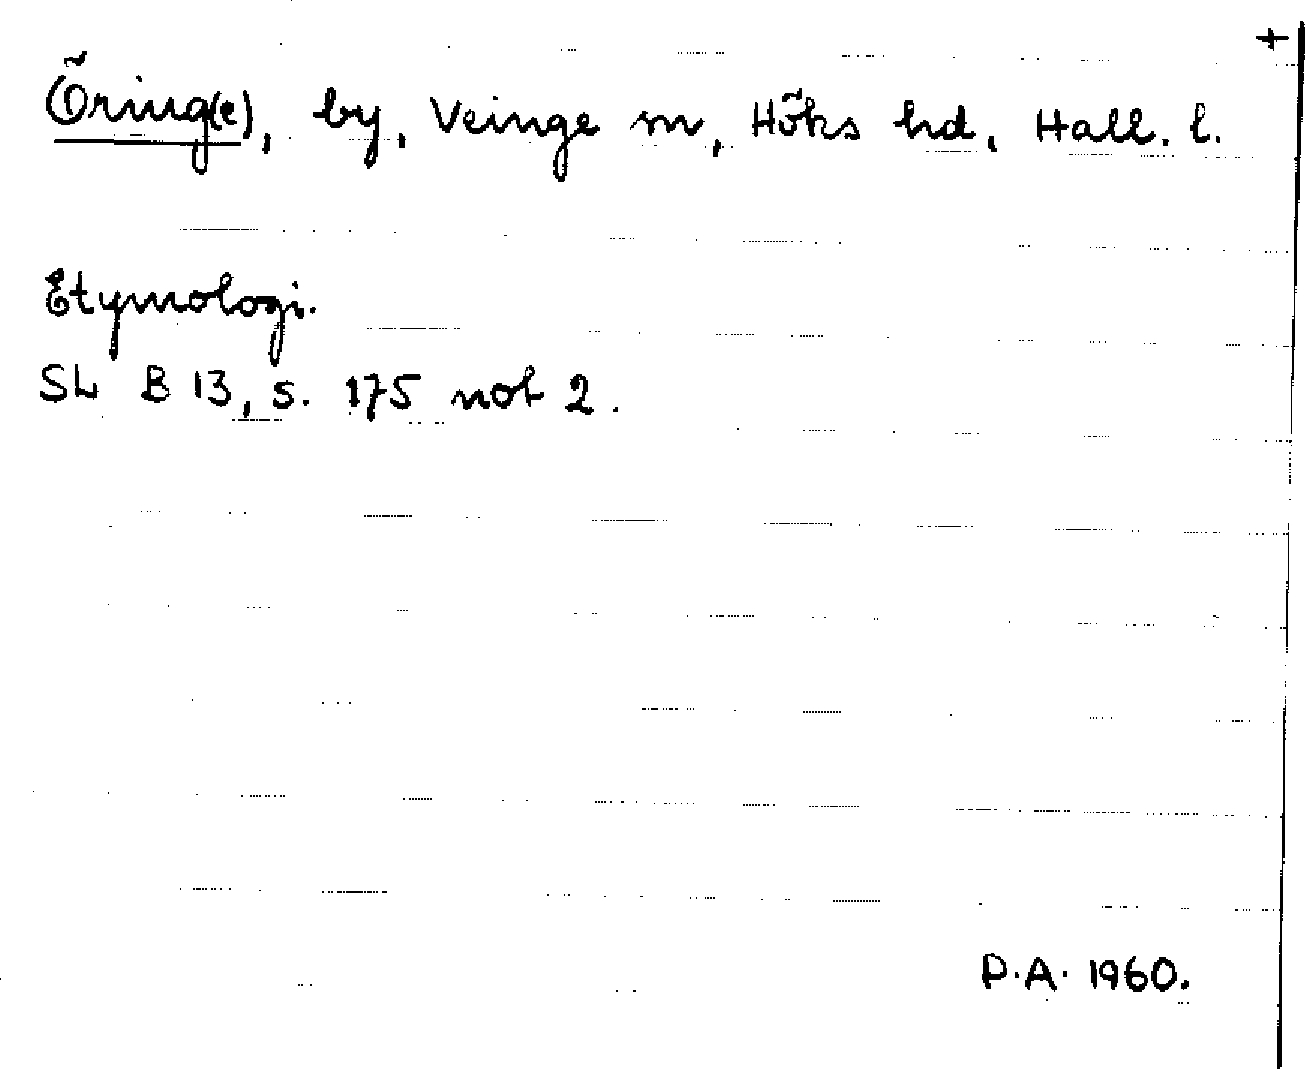 +
Öring(e), by, Veinge sn, Höks hd, Hall. l.
Etymologi.
SL B 13, s. 175 not 2.
P.A. 1960.